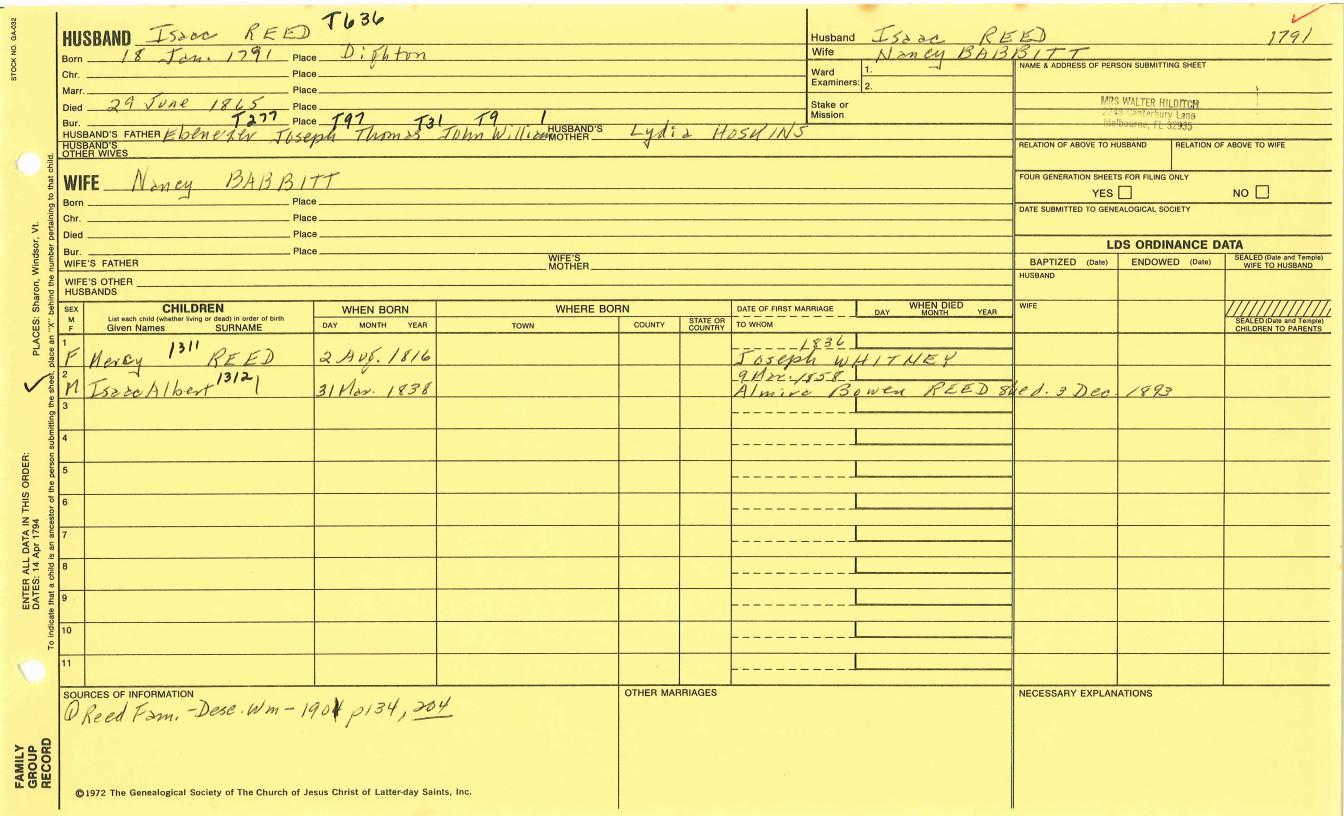 STOCK NO. GA-032
HUSBAND Isaac REED T636
Born 18 Jan. 1791 Place Dighton
Chr. Place
Marr. Place
Died 29 June 1865 Place
Bur. Place
T277 T97 T31 T9 1
HUSBAND'S FATHER Ebenezer Joseph Thomas John William HUSBAND'S MOTHER Lydia HOSKINS
HUSBAND'S OTHER WIVES
Husband Isaac REED 1791
Wife Nancy BABBITT
Ward Examiners: 1. 2.
Stake or Mission
NAME & ADDRESS OF PERSON SUBMITTING SHEET
MRS WALTER HILDITCH
Canterbury Lane
Melbourne, FL 32935
RELATION OF ABOVE TO HUSBAND RELATION OF ABOVE TO WIFE
FOUR GENERATION SHEETS FOR FILING ONLY
YES NO
DATE SUBMITTED TO GENEALOGICAL SOCIETY
WIFE Nancy BABBITT
Born Place
Chr. Place
Died Place
Bur. Place
WIFE'S FATHER WIFE'S MOTHER
WIFE'S OTHER HUSBANDS
LDS ORDINANCE DATA
BAPTIZED (Date) ENDOWED (Date) SEALED (Date and Temple) WIFE TO HUSBAND
HUSBAND
WIFE
SEALED (Date and Temple) CHILDREN TO PARENTS
SEX M F
CHILDREN
List each child (whether living or dead) in order of birth
Given Names SURNAME
WHEN BORN
DAY MONTH YEAR
WHERE BORN
TOWN COUNTY STATE OR COUNTRY
DATE OF FIRST MARRIAGE
TO WHOM
WHEN DIED
DAY MONTH YEAR
1 1836
F Mercy 1311 REED 2 Aug. 1816 Joseph WHITNEY
2 1858
M Isaac Albert 1312 31 Mar. 1838 Almira Bowen REED She d. 3 Dec. 1893
3
4
5
6
7
8
9
10
11
SOURCES OF INFORMATION
① Reed Fam. - Desc. Wm - 1901 p134, 204
OTHER MARRIAGES
NECESSARY EXPLANATIONS
©1972 The Genealogical Society of The Church of Jesus Christ of Latter-day Saints, Inc.
FAMILY GROUP RECORD
ENTER ALL DATA IN THIS ORDER:
DATES: 14 Apr 1794
PLACES: Sharon, Windsor, Vt.
To indicate that a child is an ancestor of the person submitting the sheet, place an "X" behind the number pertaining to that child.